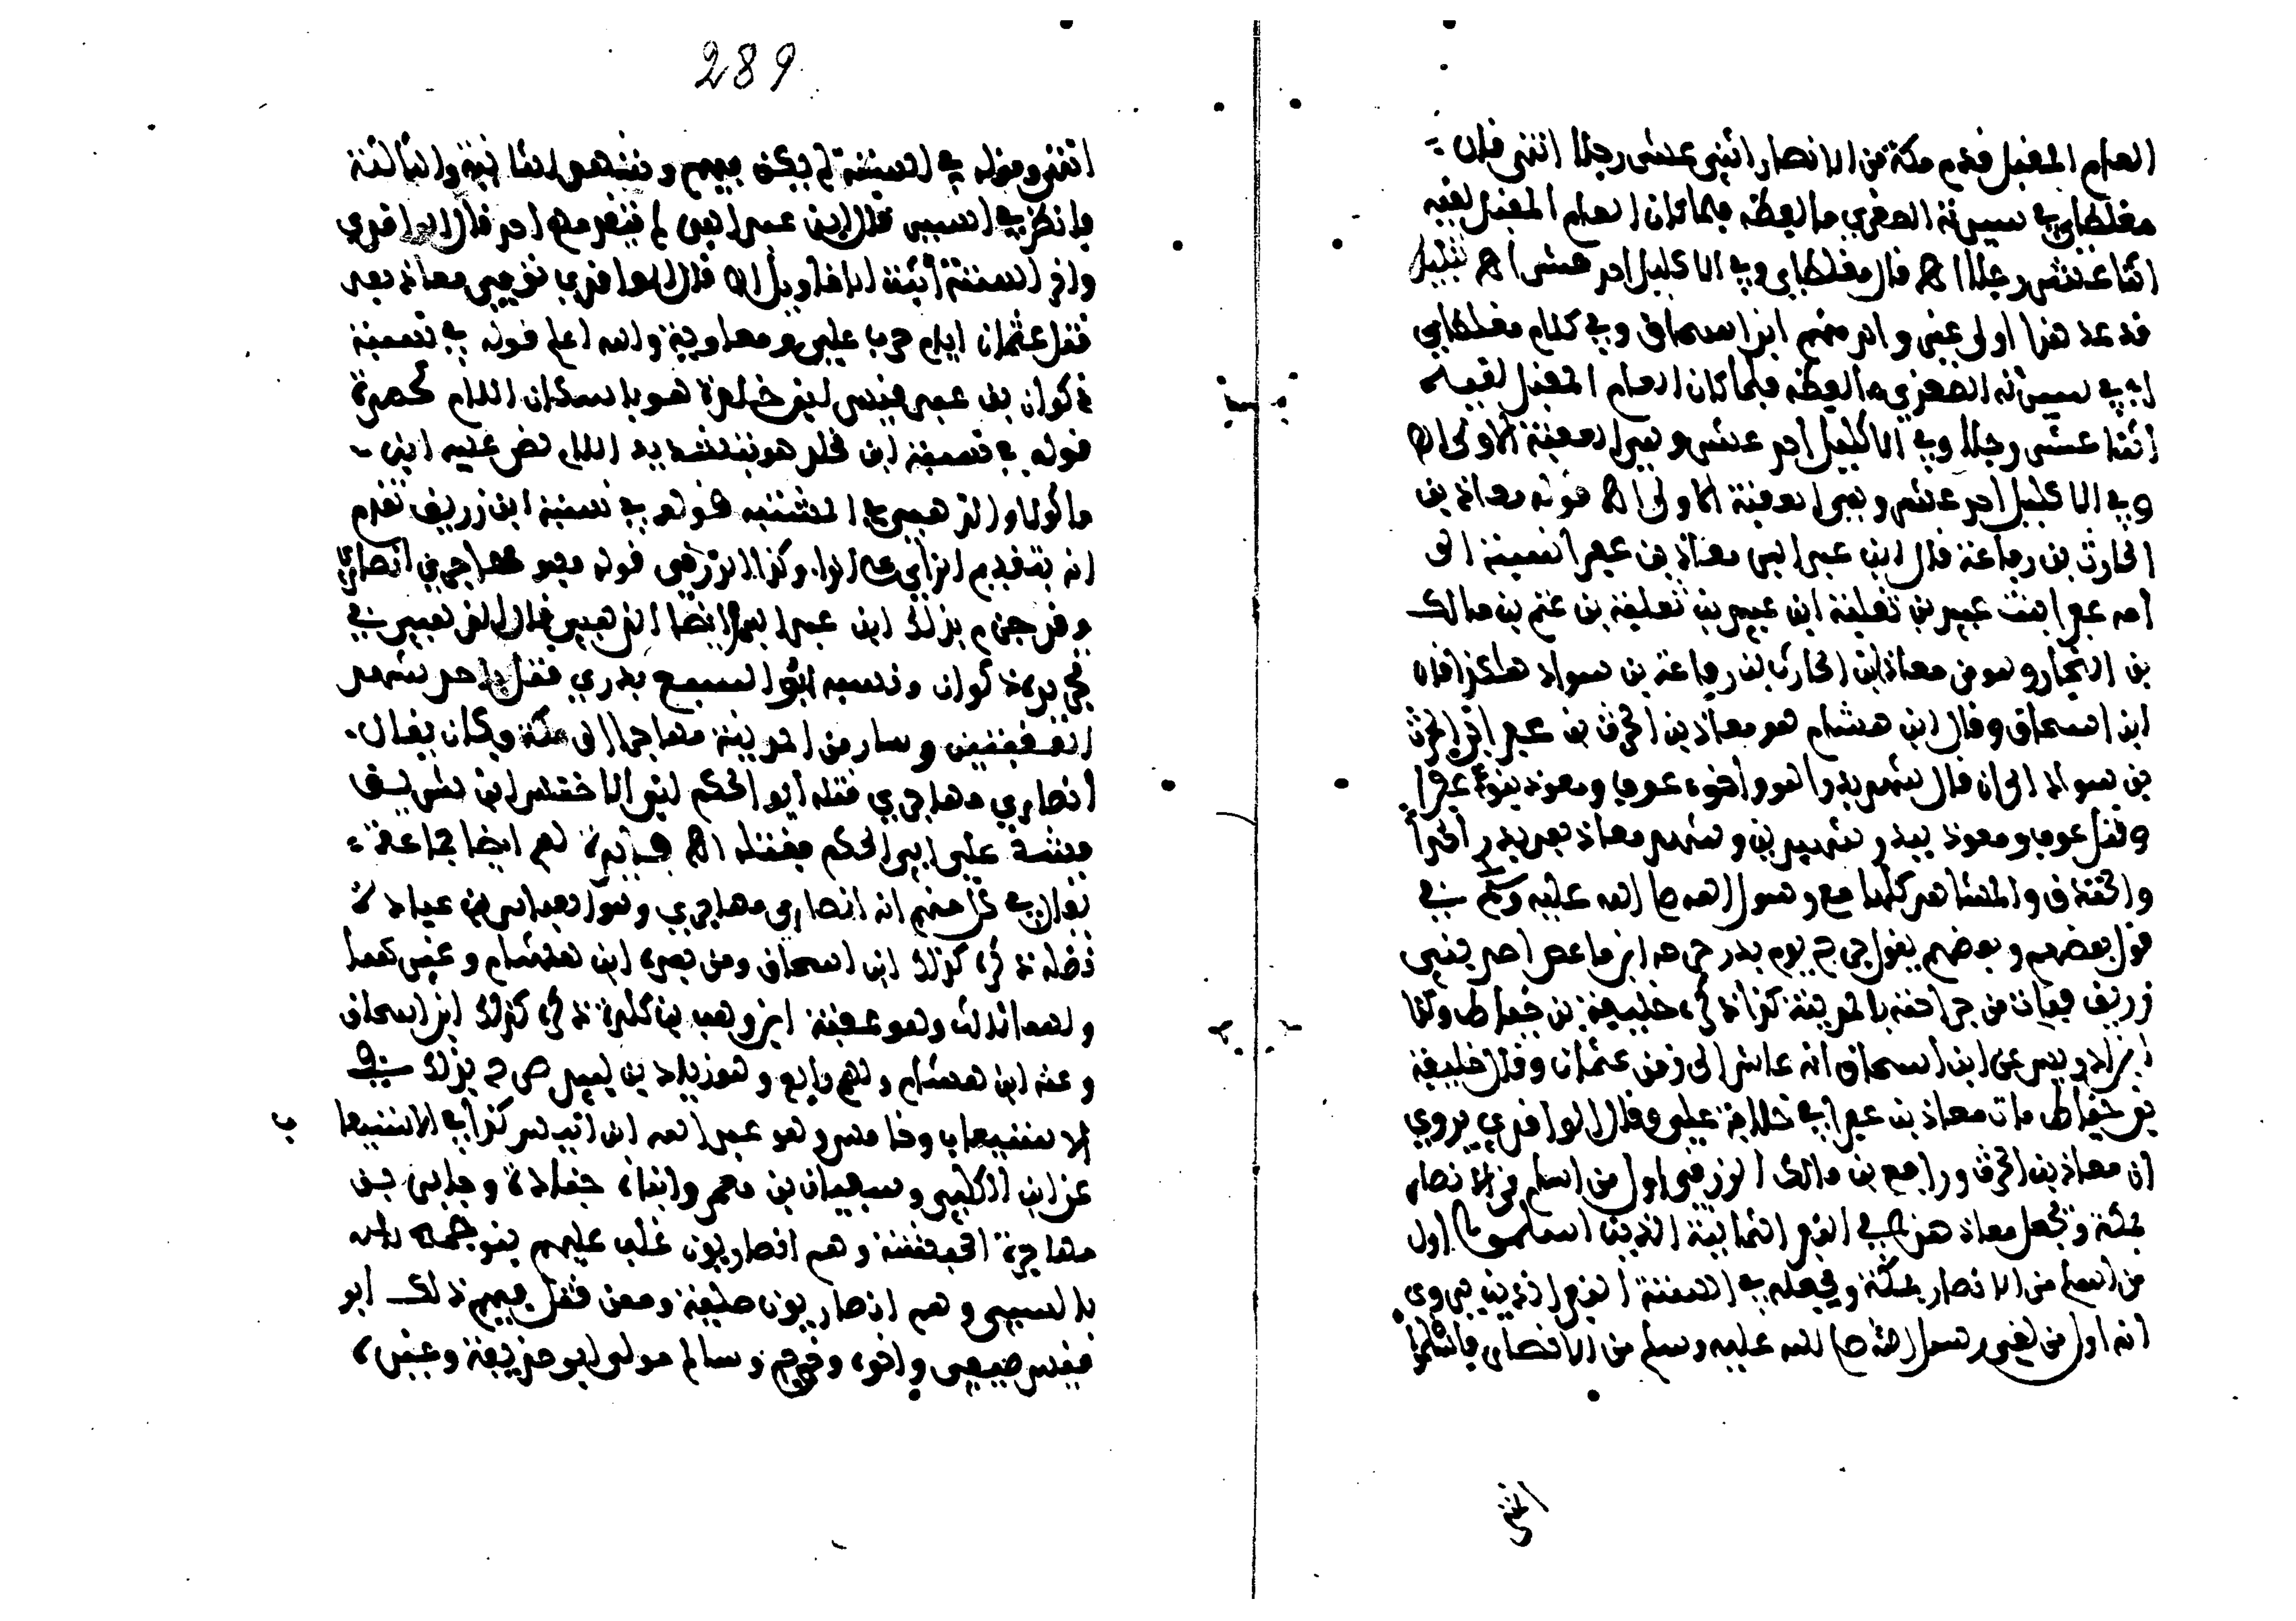 العام المقبل قدم مكة من الانصار اثني عشر رجلا انتهى قال
مغلطاي في سيرته الصغرى ما لفظه فلما كان العام المقبل لقيه
اثنا عشر رجلا اه قال مغلطاي وفي الاكليل احد عشر اه تنبيه
قد عد هذا اولى غير واحد منهم ابن اسحاق وفي كلام مغلطاي
اي في سيرته الصغرى ما لفظه فلما كان العام المقبل لقيه
اثنا عشر رجلا وفي الاكليل احد عشر وهي العقبة الاولى اه
وفي الاكليل احد عشر وهي العقبة الاولى اه قوله معاذ بن
الحارث بن رفاعة قال ابن عبد البر معاذ بن عفرا نسبة الى
امه عفرا بنت عبيد بن ثعلبة ابن عبيد بن ثعلبة بن غنم بن مالك
بن النجار وهو من معاذ ابن الحارث بن رفاعة بن سواد هاكذا قال
ابن اسحاق وقال ابن هشام هو معاذ بن الحرث بن عفرا ابن الحرث
بن سواد الى ان قال شهد بدرا هو واخوه عوف ومعوذ بنو عفرا
وقتل عوف ومعوذ ببدر شهيدين وشهد معاذ بعد بدر احدا
والخندق والمشاهد كلها مع رسول الله صلى الله عليه وسلم في
قول بعضهم وبعضهم يقول جرح يوم بدر جرحه ابن ماعص احد بني
زريق فمات من جراحته بالمدينة كذا ذكره خليفة بن خياط وكذا
ابن ادريس عن ابن اسحاق انه عاش الى زمن عثمان وقال خليفة
بن خياط مات معاذ بن عفرا في خلافة علي وقال الواقدي يروى
ان معاذ بن الحرث ورافع بن مالك الزرقي اول من اسلم من الانصار
بمكة ويجعل معاذ هذا في النفر الثمانية الذين اسلموا اول
من اسلم من الانصار بمكة ويجعله في الستة النفر الذين يروى
انه اول من لقي رسول الله صلى الله عليه وسلم من الانصار فاسلموا
289
انتهى وقوله في الستة لم يكن فيهم وشهد الثانية والثالثة
فانظر في السير قال ابن عبد البر لم يتقدمهم احد قال الواقدي
وامر الستة اثبت الاقاويل اه قال الواقدي توفي معاذ بعد
قتل عثمان ايام حرب علي ومعاوية والله اعلم قوله في تسمية
ذكوان بن عبد قيس ابن خلدة هو باسكان اللام كحمزة
قوله في تسمية ابن مخلد هو بتشديد اللام نص عليه ابن
ماكولا والذهبي في المشتبه قوله في تسمية ابن زريق تقدم
انه بتقديم الزاي على الرا وكذا الزرقي قوله فهو مهاجري انصاري
وقد جزم بذلك ابن عبد البر ايضا الذهبي قال الذهبي في
تجريده ذكوان ونسبه ابو السبع بدري قتل باحد شهد
العقبتين وسار من المدينة مهاجرا الى مكة وكان يقال
انصاري مهاجري قتله ابو الحكم ابن الاخنس ابن شريق
فشد علي ابي الحكم فقتله اه فايدة لهم ايضا جماعة
يقال في كل منهم انه انصاري مهاجري وهو العباس بن عبادة
نضلة ذكره كذلك ابن اسحاق ومن بعده ابن هشام وغيرهما
ولهما ثالث وهو عقبة ابن وهب بن كلدة ذكره كذلك ابن اسحاق
وعنه ابن هشام ولهم رابع وهو زياد بن لبيد صرح بذلك في
الاستيعاب وخامس وهو عبد الله ابن انيس كذا في الاستيعاب
عن ابن الكلبي وسفيان بن معمر وابناه جنادة وجابر من
مهاجرة الحبشة وهم انصاريون غلب عليهم بنو جمح
بالسبي وهم انصاريون صليبة وممن قتل فيهم ذلك ابو
قيس صيفي واخوه وخرجه وسالم مولى ابو حذيفة وغيره